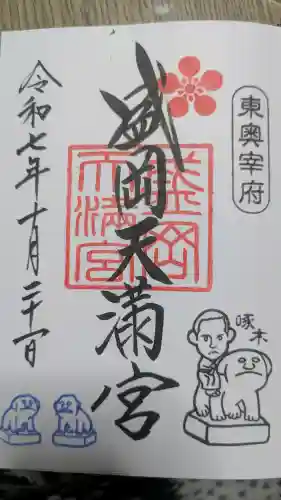 東奥宰府
盛岡天満宮
盛岡
天満宮
啄木
令和七年十月二十一日